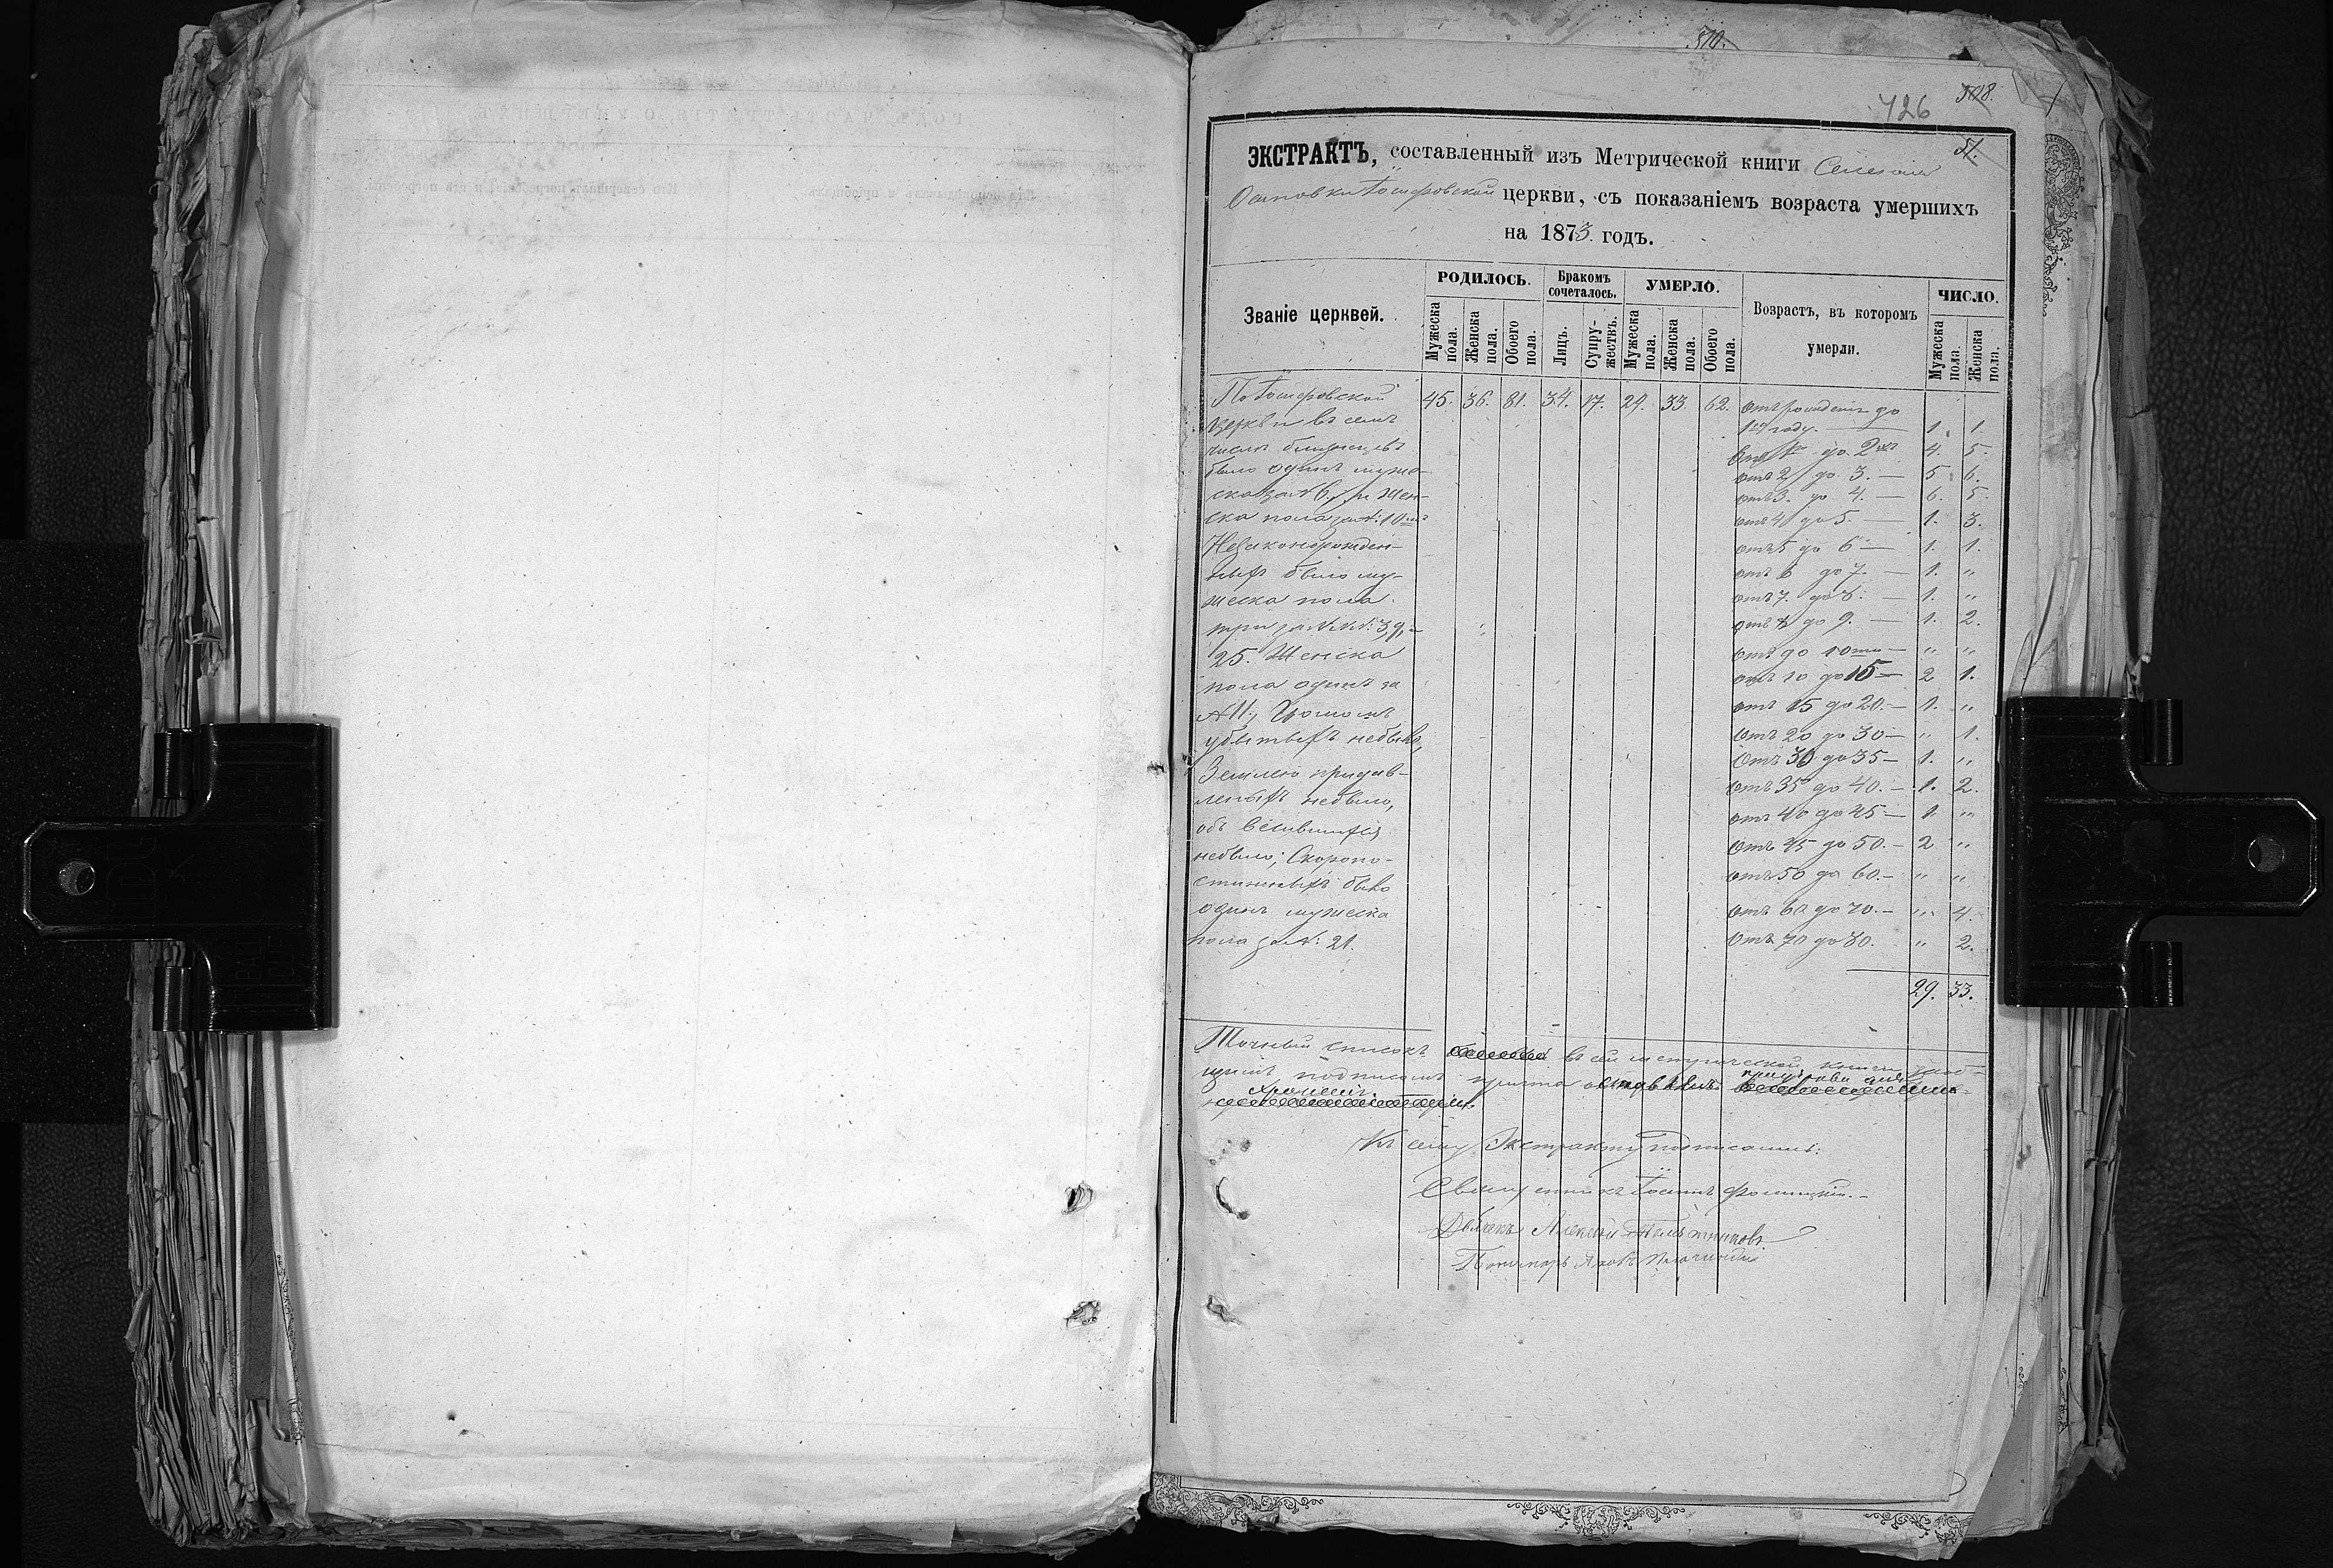 510.
726 508.
51.
ЭКСТРАКТЪ, составленный изъ Метрической книги Селенія
Осиповки Іосифовской церкви, съ показаніемъ возраста умершихъ
на 1873. годъ.
Званіе церквей.
РОДИЛОСЬ.
Мужеска пола.
Женска пола.
Обоего пола.
Бракомъ сочеталось.
Лицъ.
Супружествъ.
УМЕРЛО.
Мужеска пола.
Женска пола.
Обоего пола.
Возрастъ, въ которомъ умерли.
ЧИСЛО.
Мужеска пола.
Женска пола.
По Іосифовской
церкви въ семъ
числѣ близнецовъ
было одинъ муже-
ска за N 6. и жен-
ска пола за N: 10мъ
Незаконорожден-
ныхъ было му-
жеска пола
три за N.N.N: 3, 9,
25. Женска
пола одинъ за
N 11, Громомъ
убитыхъ небыло,
Землею придав-
леныхъ небыло,
обвѣсившихся
небыло; Скоропо-
стижныхъ было
одинъ мужеска
пола за N: 21.
45. 36. 81. 34. 17. 29. 33. 62.
Отъ рожденія до
1го году. — 1. 1.
Отъ 1 до 2хъ 4. 5.
отъ 2 до 3. — 5. 6.
отъ 3. до 4. — 6. 5.
отъ 4 до 5. — 1. 3.
отъ 5 до 6 — 1. 1.
отъ 6 до 7. — 1. "
отъ 7. до 8. — 1. "
отъ 8 до 9. — 1. 2.
Отъ до 10ти — " "
отъ 10 до 15 — 2 1.
отъ 15 до 20. — 1. "
Отъ 20 до 30 — " 1.
Отъ 30 до 35 — 1. "
Отъ 35 до 40. — 1. 2.
отъ 40 до 45 — 1. "
Отъ 45 до 50. — 2 "
отъ 50 до 60. — " "
Отъ 60 до 70. — " 4.
Отъ 70 до 80. " 2.
29. 33.
Точный списокъ въ сей метрической книги
подписомъ причта оставленъ при
храненія.
Къ сему Экстракту подписались:
Священникъ Іоаннъ
Дьячекъ Алексей
Пономарь Яковъ